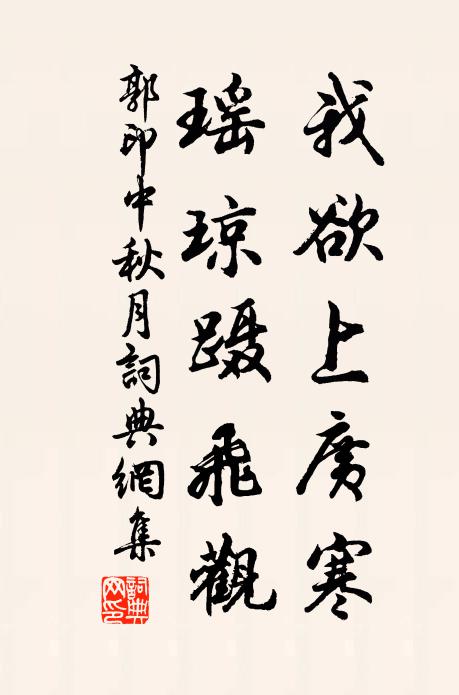 我欲上廣寒
瑶琼蹑飛觀
郭印中秋月詞典網集
詞典网印